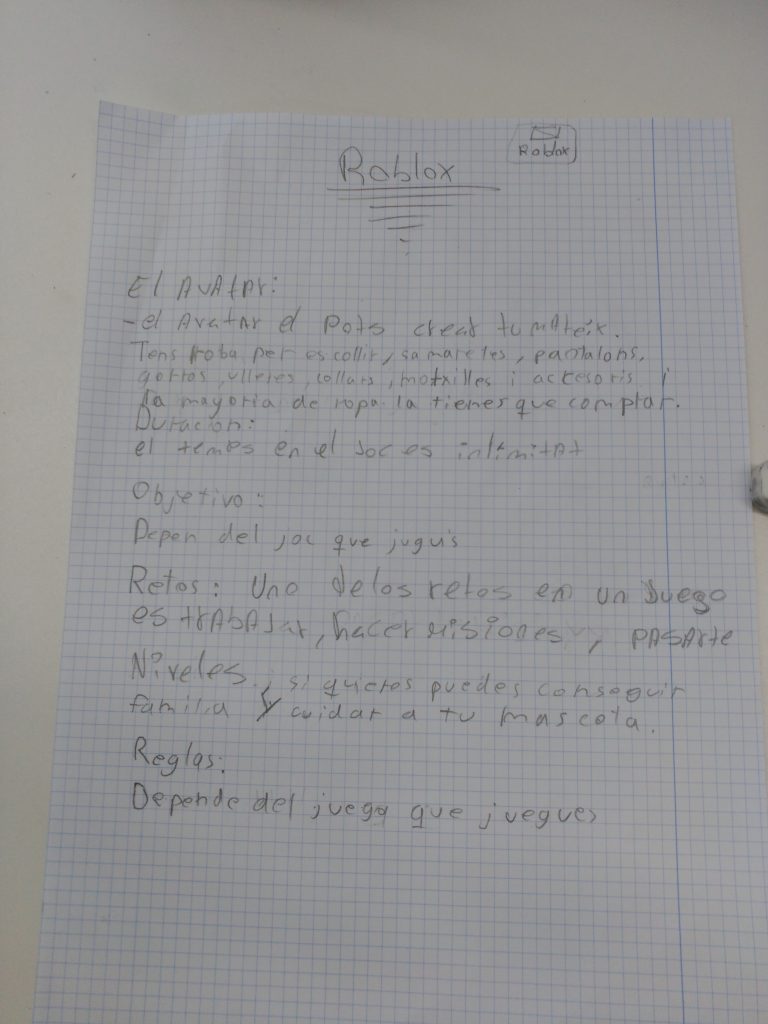 Roblox
Roblox
El AvAtAr:
-el AvatAr el Pots crear tu mAteix.
Tens roba per escollir, samareles, pantalons,
gorros, ulleres, collars, motxilles i accesoris i
la mayoria de ropa la tienes que comprar.
Duracion:
el temps en el Joc es inlimitAt
Objetivo:
Depen del joc que juguis
Retos: Uno de los retos en un Juego
es trAbAJar, hacer misiones, y PASArte
Niveles, si quieres puedes conseguir
familia y cuidar a tu mascota.
Reglas:
Depende del juego que juegues